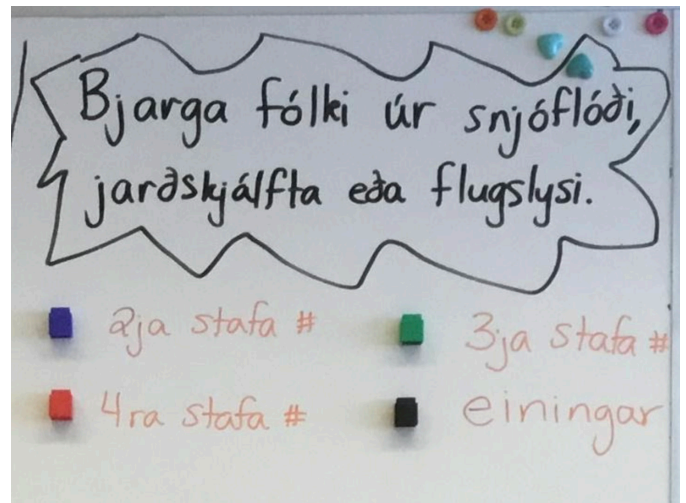 Bjarga fólki úr snjóflóði,
jarðskjálfta eða flugslysi.
2ja stafa #
3ja stafa #
4ra stafa #
einingar